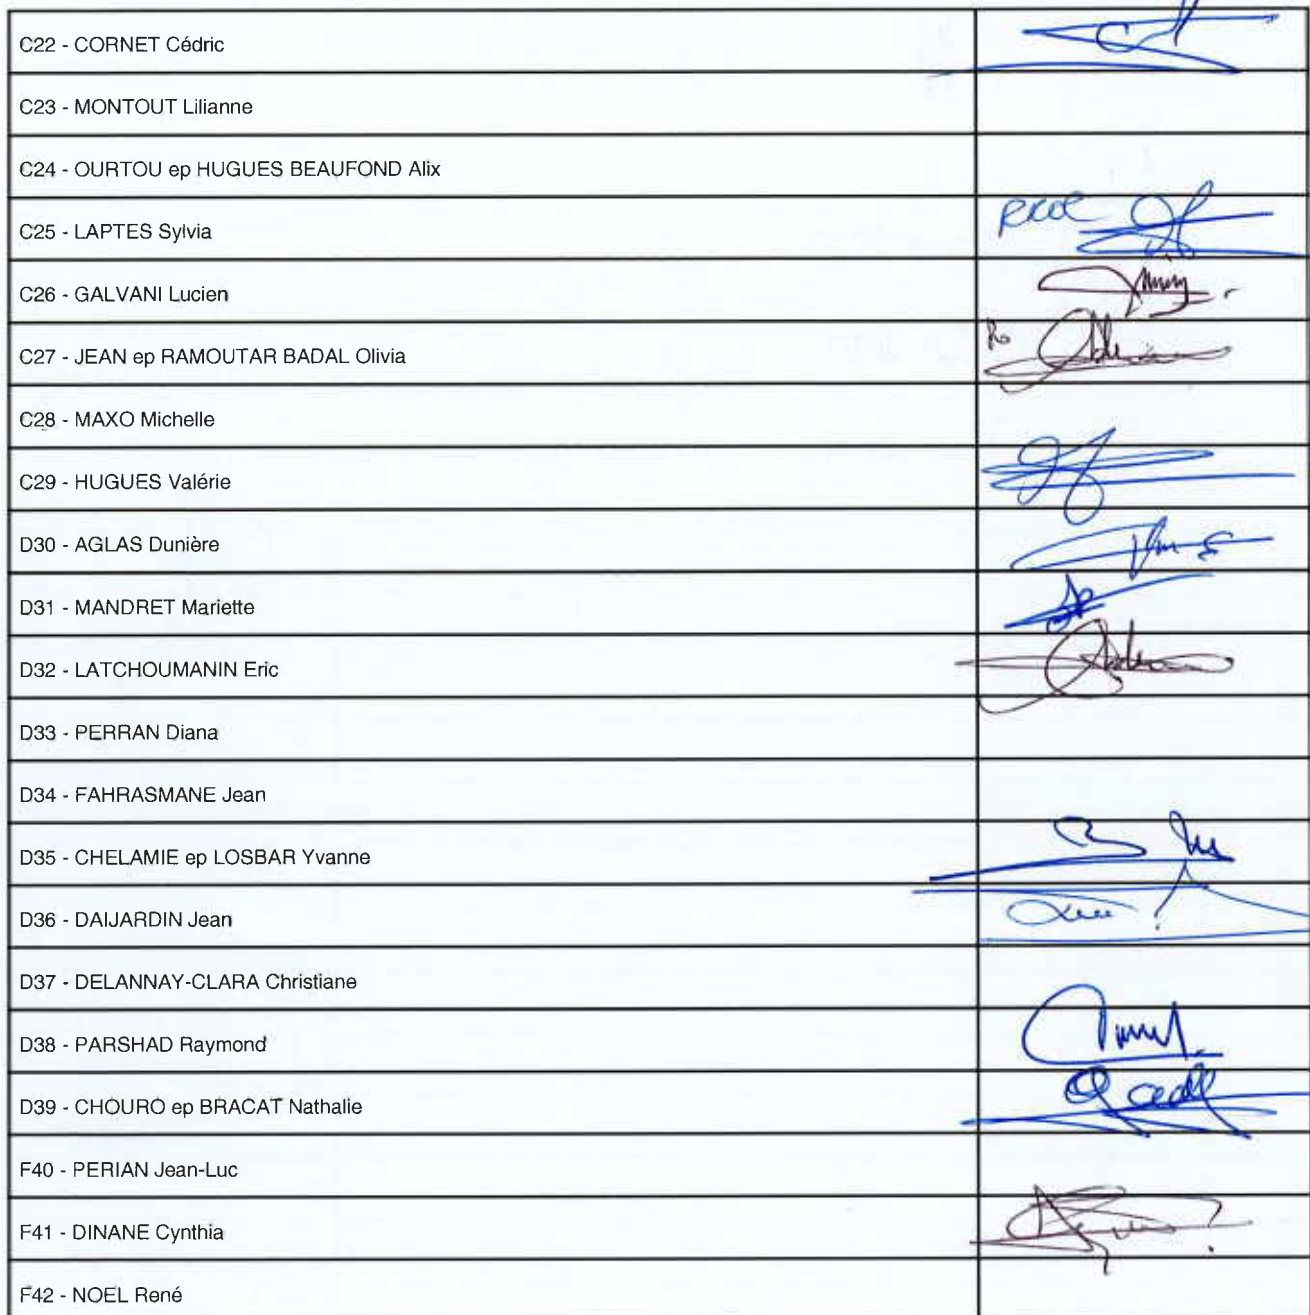 C22 - CORNET Cédric
C23 - MONTOUT Lilianne
C24 - OURTOU ep HUGUES BEAUFOND Alix
C25 - LAPTES Sylvia
C26 - GALVANI Lucien
C27 - JEAN ep RAMOUTAR BADAL Olivia
C28 - MAXO Michelle
C29 - HUGUES Valérie
D30 - AGLAS Dunière
D31 - MANDRET Mariette
D32 - LATCHOUMANIN Eric
D33 - PERRAN Diana
D34 - FAHRASMANE Jean
D35 - CHELAMIE ep LOSBAR Yvanne
D36 - DAIJARDIN Jean
D37 - DELANNAY-CLARA Christiane
D38 - PARSHAD Raymond
D39 - CHOURO ep BRACAT Nathalie
F40 - PERIAN Jean-Luc
F41 - DINANE Cynthia
F42 - NOEL René